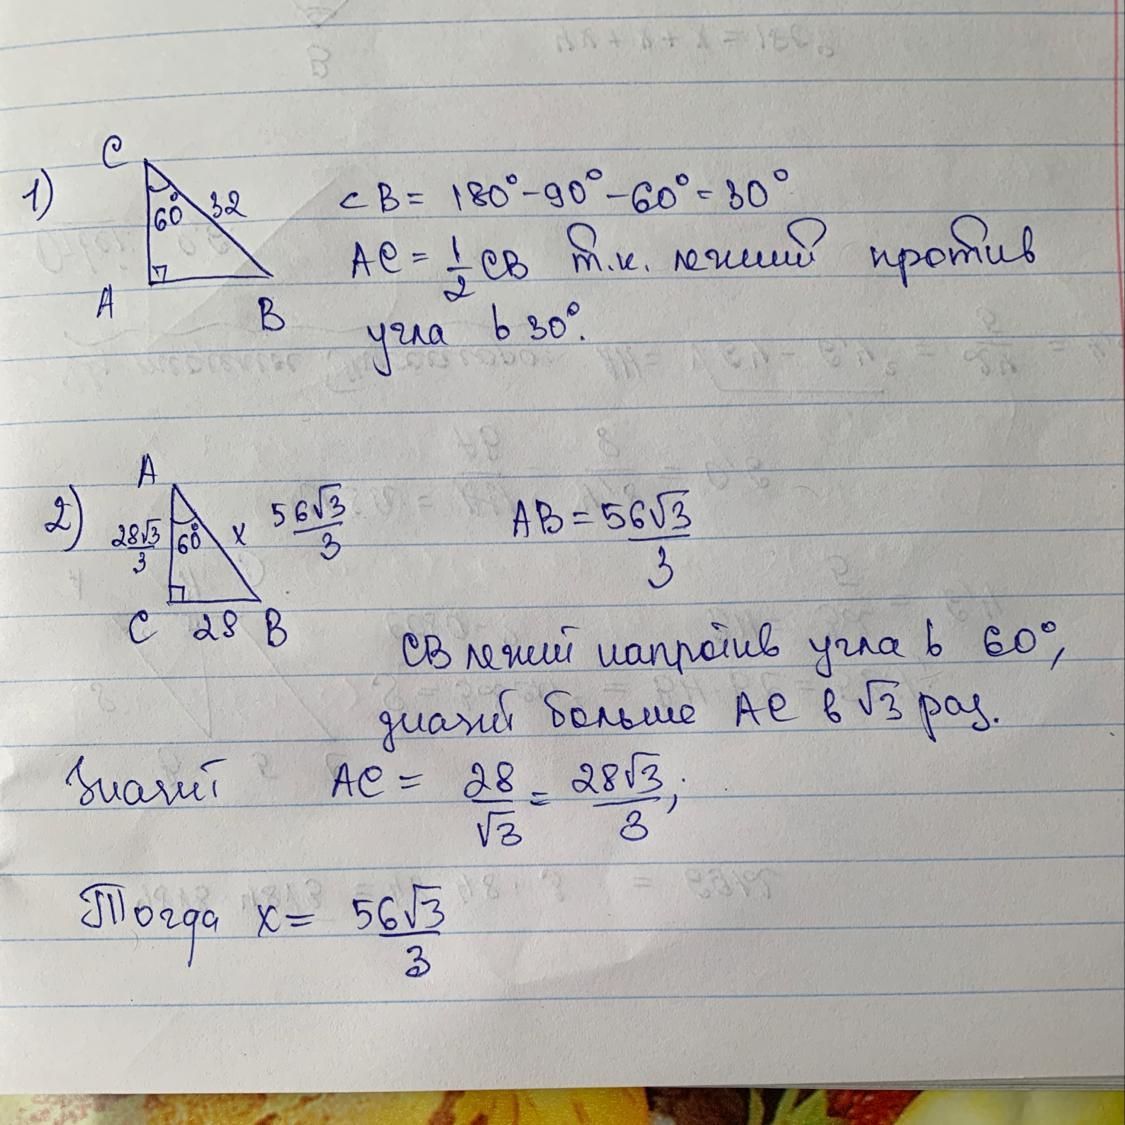 1)
C
60°
32
A
B
∠B = 180° - 90° - 60° = 30°
AC = 1/2 CB т.к. лежит против
угла в 30°.
2)
A
28√3/3
60°
x
56√3/3
C 28 B
AB = 56√3/3
CB лежит напротив угла в 60°,
значит больше AC в √3 раз.
Значит AC = 28/√3 = 28√3/3;
Тогда x = 56√3/3